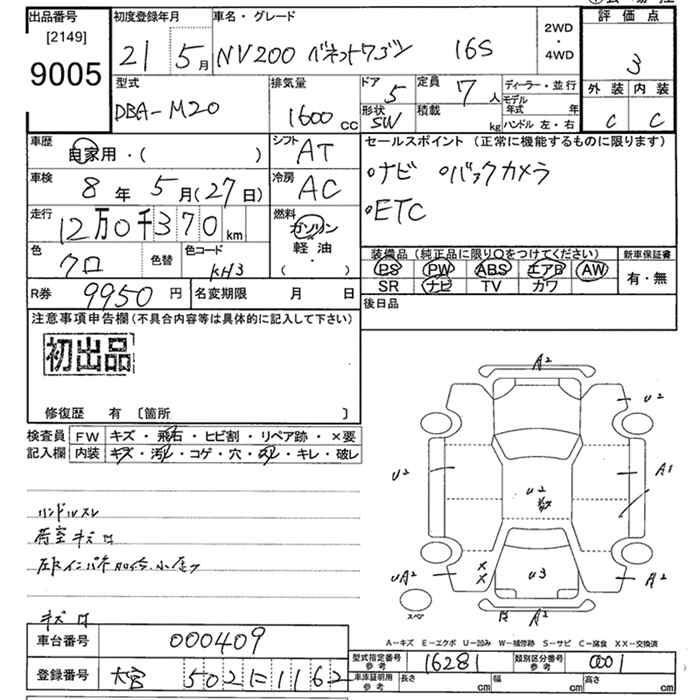 出品番号 初度登録年月 車名・グレード 2WD・4WD 評価点
[2149]
9005 21 5月 NV200 バネットワゴン 16S 3
型式 排気量 ドア 定員 ディーラー・並行 外装 内装
DBA-M20 1600cc 5 7人 モデル年式 年 C C
形状 SW 積載 kg ハンドル 左・右
車歴 自家用・( ) シフト AT セールスポイント(正常に機能するものに限ります)
車検 8年5月(27日) 冷房 AC ・ナビ ・バックカメラ
走行 12万0千370km 燃料 ガソリン・軽油・( ) ・ETC
色 クロ 色替 色コード KH3 装備品(純正品に限り○をつけてください) 新車保証書
PS PW ABS エアB AW 有・無
R券 9950円 名変期限 月 日 SR ナビ TV カワ
注意事項申告欄(不具合内容等は具体的に記入して下さい) 後日品
初出品
修復歴 有 [箇所 ]
検査員 FW キズ・飛石・ヒビ割・リペア跡・×要
記入欄 内装 キズ・汚レ・コゲ・穴・スレ・キレ・破レ
ハンドルスレ
荷室キズ
キズ
A2
U2
U2 U2 A1
UA2 U3 A2
スペア A2
A-キズ E-エクボ U-凹み W-補修跡 S-サビ C-腐食 XX-交換済
車台番号 000409
型式指定番号 参考 16281 類別区分番号 参考 0001
登録番号 大宮 502 に 1162
車庫証明用 参考 長さ cm 幅 cm 高さ cm